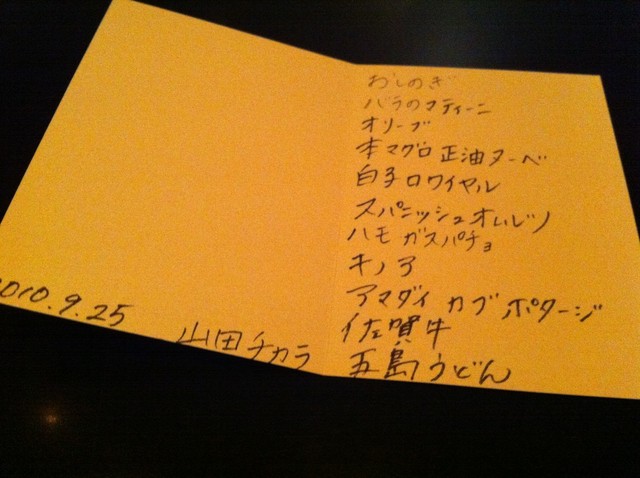 2010.9.25
山田チカラ
おしのぎ
バラのマティーニ
オリーブ
本マグロ 正油ヌーベ
白子ロワイヤル
スパニッシュオムレツ
ハモ ガスパチョ
キノア
アマダイ カブ ポタージ
佐賀牛
五島うどん